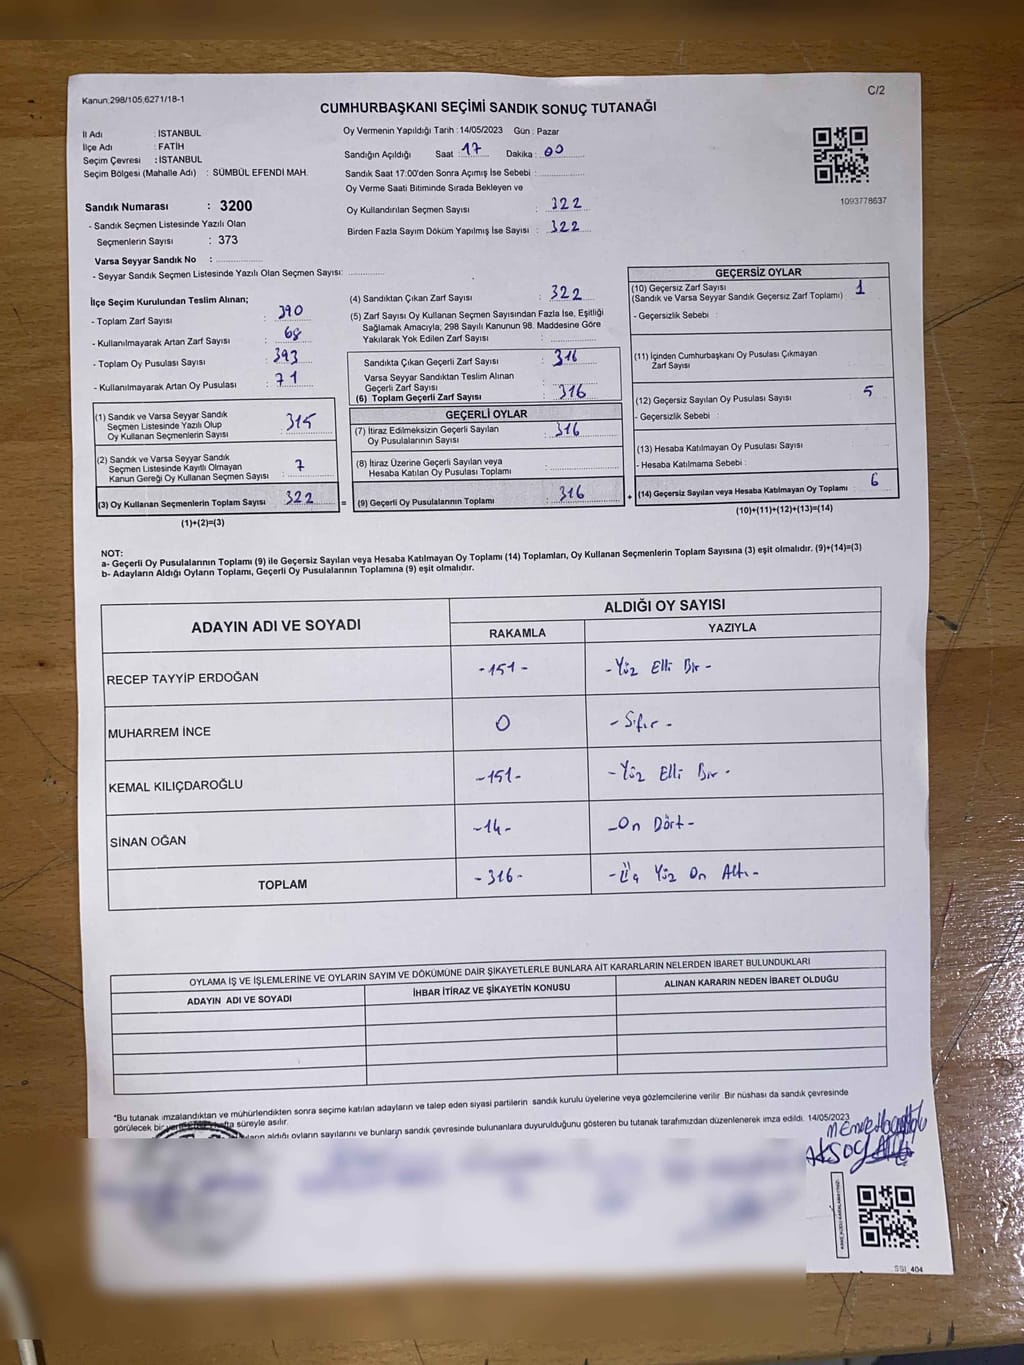 Kanun;298/105;6271/18-1
C/2
CUMHURBAŞKANI SEÇİMİ SANDIK SONUÇ TUTANAĞI
İl Adı : İSTANBUL
İlçe Adı : FATİH
Seçim Çevresi : İSTANBUL
Seçim Bölgesi (Mahalle Adı) : SÜMBÜL EFENDİ MAH.
Sandık Numarası : 3200
- Sandık Seçmen Listesinde Yazılı Olan
Seçmenlerin Sayısı : 373
Varsa Seyyar Sandık No :
- Seyyar Sandık Seçmen Listesinde Yazılı Olan Seçmen Sayısı:
Oy Vermenin Yapıldığı Tarih : 14/05/2023 Gün : Pazar
Sandığın Açıldığı Saat : 17 Dakika : 00
Sandık Saat 17:00'den Sonra Açımış İse Sebebi :
Oy Verme Saati Bitiminde Sırada Bekleyen ve
Oy Kullandırılan Seçmen Sayısı : 322
Birden Fazla Sayım Döküm Yapılmış İse Sayısı : 322
1093778637
İlçe Seçim Kurulundan Teslim Alınan;
- Toplam Zarf Sayısı : 390
- Kullanılmayarak Artan Zarf Sayısı : 68
- Toplam Oy Pusulası Sayısı : 393
- Kullanılmayarak Artan Oy Pusulası : 71
(1) Sandık ve Varsa Seyyar Sandık
Seçmen Listesinde Yazılı Olup
Oy Kullanan Seçmenlerin Sayısı : 315
(2) Sandık ve Varsa Seyyar Sandık
Seçmen Listesinde Kayıtlı Olmayan
Kanun Gereği Oy Kullanan Seçmen Sayısı : 7
(3) Oy Kullanan Seçmenlerin Toplam Sayısı : 322 =
(1)+(2)=(3)
(4) Sandıktan Çıkan Zarf Sayısı : 322
(5) Zarf Sayısı Oy Kullanan Seçmen Sayısından Fazla İse, Eşitliği
Sağlamak Amacıyla; 298 Sayılı Kanunun 98. Maddesine Göre
Yakılarak Yok Edilen Zarf Sayısı :
Sandıkta Çıkan Geçerli Zarf Sayısı : 316
Varsa Seyyar Sandıktan Teslim Alınan
Geçerli Zarf Sayısı :
(6) Toplam Geçerli Zarf Sayısı : 316
GEÇERLİ OYLAR
(7) İtiraz Edilmeksizin Geçerli Sayılan
Oy Pusulalarının Sayısı : 316
(8) İtiraz Üzerine Geçerli Sayılan veya
Hesaba Katılan Oy Pusulası Toplamı :
(9) Geçerli Oy Pusulalarının Toplamı : 316 +
GEÇERSİZ OYLAR
(10) Geçersiz Zarf Sayısı
(Sandık ve Varsa Seyyar Sandık Geçersiz Zarf Toplamı) : 1
- Geçersizlik Sebebi :
(11) İçinden Cumhurbaşkanı Oy Pusulası Çıkmayan
Zarf Sayısı :
(12) Geçersiz Sayılan Oy Pusulası Sayısı : 5
- Geçersizlik Sebebi :
(13) Hesaba Katılmayan Oy Pusulası Sayısı :
- Hesaba Katılmama Sebebi :
(14) Geçersiz Sayılan veya Hesaba Katılmayan Oy Toplamı : 6
(10)+(11)+(12)+(13)=(14)
NOT:
a- Geçerli Oy Pusulalarının Toplamı (9) ile Geçersiz Sayılan veya Hesaba Katılmayan Oy Toplamı (14) Toplamları, Oy Kullanan Seçmenlerin Toplam Sayısına (3) eşit olmalıdır. (9)+(14)=(3)
b- Adayların Aldığı Oyların Toplamı, Geçerli Oy Pusulalarının Toplamına (9) eşit olmalıdır.
ADAYIN ADI VE SOYADI
ALDIĞI OY SAYISI
RAKAMLA YAZIYLA
RECEP TAYYİP ERDOĞAN -151- -Yüz Elli Bir-
MUHARREM İNCE 0 -Sıfır-
KEMAL KILIÇDAROĞLU -151- -Yüz Elli Bir-
SİNAN OĞAN -14- -On Dört-
TOPLAM -316- -Üç Yüz On Altı-
OYLAMA İŞ VE İŞLEMLERİNE VE OYLARIN SAYIM VE DÖKÜMÜNE DAİR ŞİKAYETLERLE BUNLARA AİT KARARLARIN NELERDEN İBARET BULUNDUKLARI
ADAYIN ADI VE SOYADI İHBAR İTİRAZ VE ŞİKAYETİN KONUSU ALINAN KARARIN NEDEN İBARET OLDUĞU
*Bu tutanak imzalandıktan ve mühürlendikten sonra seçime katılan adayların ve talep eden siyasi partilerin sandık kurulu üyelerine veya gözlemcilerine verilir. Bir nüshası da sandık çevresinde
görülecek bir süreyle asılır.
aldığı oyların sayılarını ve bunların sandık çevresinde bulunanlara duyurulduğunu gösteren bu tutanak tarafımızdan düzenlenerek imza edildi. 14/05/2023
AKSOY
SSI_404